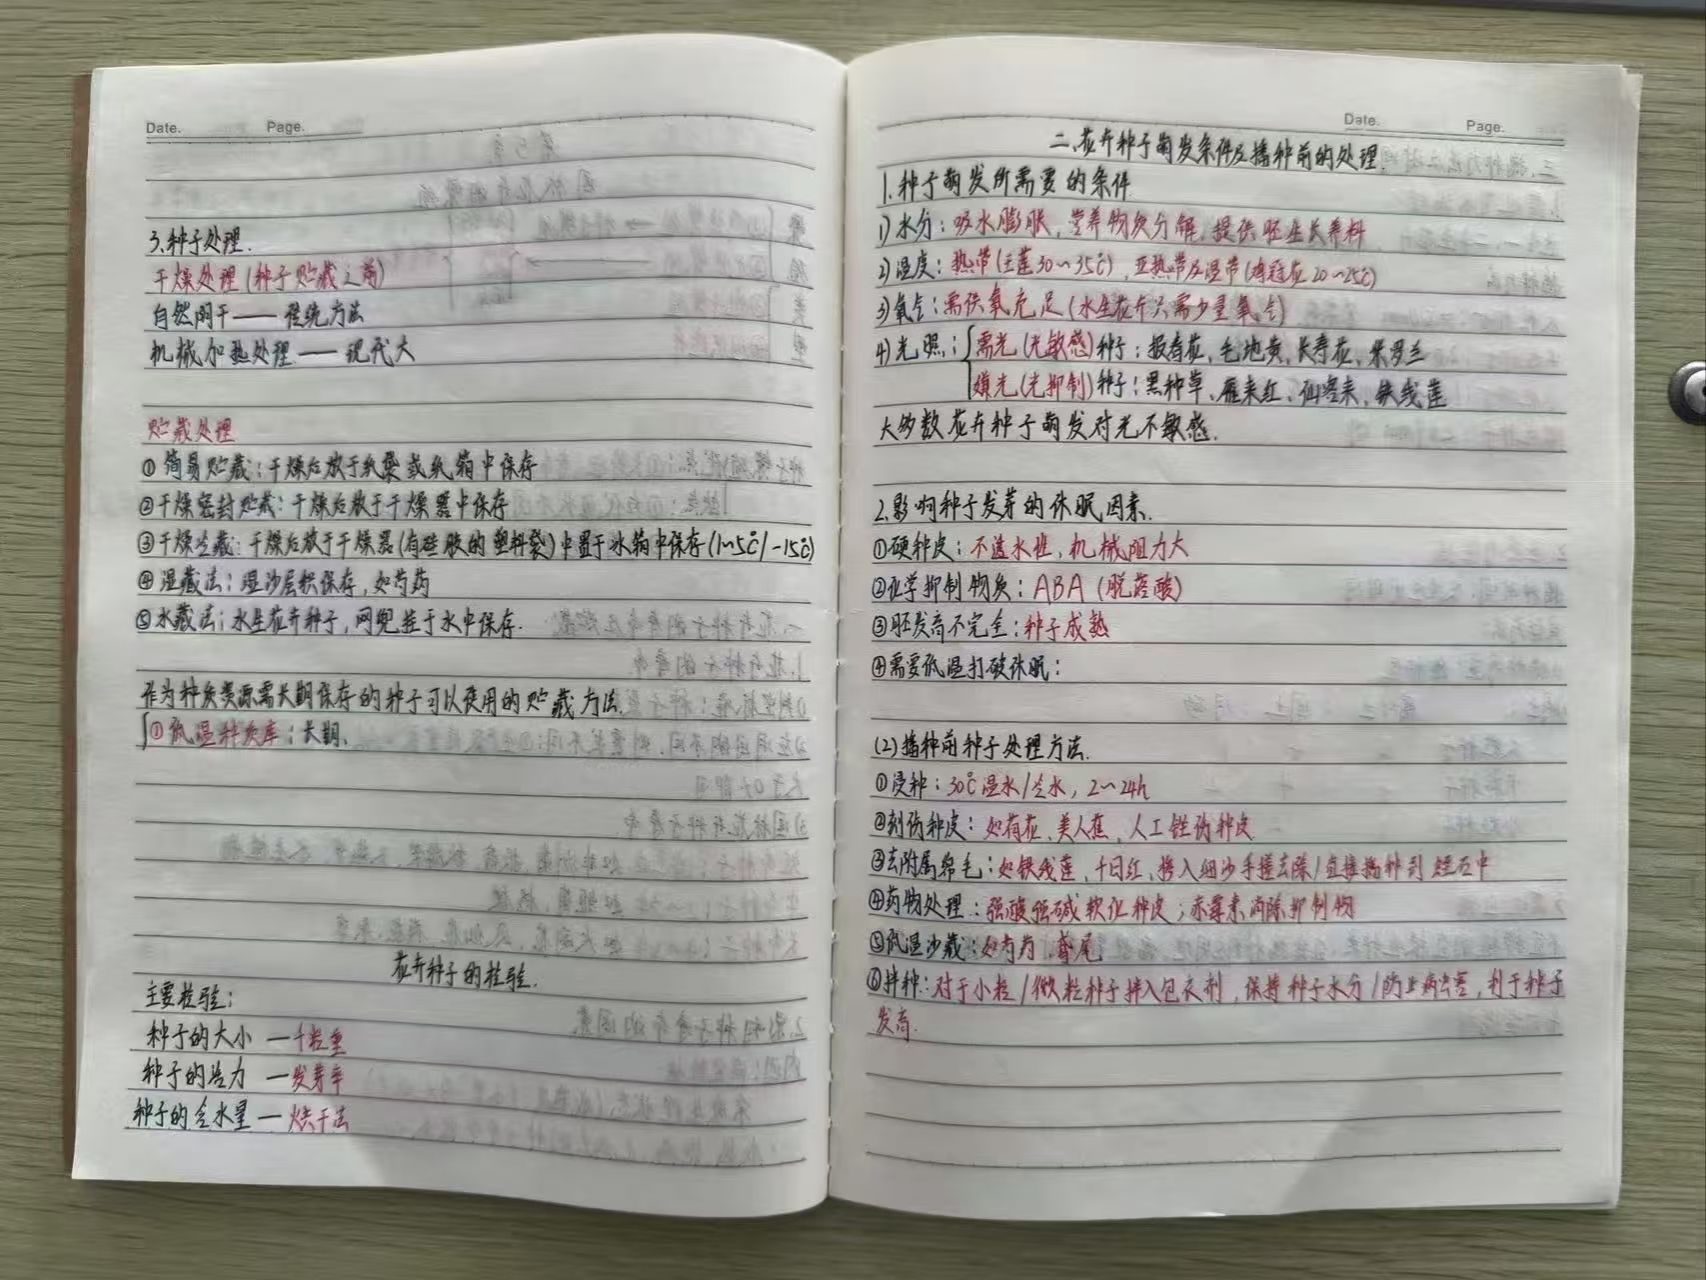 Date. Page.
3.种子处理.
干燥处理(种子贮藏之前)
自然阴干——传统方法
机械加热处理——现代大
贮藏处理
①简易贮藏:干燥后放于纸袋或纸箱中保存
②干燥密封贮藏:干燥后放于干燥器中保存
③干燥冷藏:干燥后放于干燥器(有硅胶的塑料袋)中置于冰箱中保存(1~5℃/-15℃)
④湿藏法:湿沙层积保存,如芍药
⑤水藏法:水生花卉种子,网兜挂于水中保存.
作为种质资源需长期保存的种子可以使用的贮藏方法.
①低温种质库:长期、
花卉种子的检验.
主要检验:
种子的大小—千粒重
种子的活力—发芽率
种子的含水量—烘干法
Date. Page.
二、花卉种子萌发条件及播种前的处理.
1.种子萌发所需要的条件
1)水分:吸水膨胀,营养物质分解,提供胚生长养料
2)温度:热带(王莲30~35℃),亚热带及温带(鸡冠花20~25℃)
3)氧气:需供氧充足(水生花卉只需少量氧气)
4)光照:需光(光敏感)种子:报春花,毛地黄,长寿花,紫罗兰
嫌光(光抑制)种子:黑种草、雁来红、仙客来、铁线莲
大多数花卉种子萌发对光不敏感.
2.影响种子发芽的休眠因素.
①硬种皮:不透水性,机械阻力大
②化学抑制物质:ABA(脱落酸)
③胚发育不完全:种子成熟
④需要低温打破休眠:
(2)播种前种子处理方法.
①浸种:30℃温水/冷水,2~24h
②刻伤种皮:如荷花、美人蕉,人工锉伤种皮
③去附属绵毛:如铁线莲,千日红,掺入细沙手搓去除/直接播种到蛭石中
④药物处理:强酸强碱软化种皮;赤霉素消除抑制物
⑤低温沙藏:如芍药,鸢尾
⑥拌种:对于小粒/微粒种子拌入包衣剂,保持种子水分/防止病虫害,利于种子
发育.